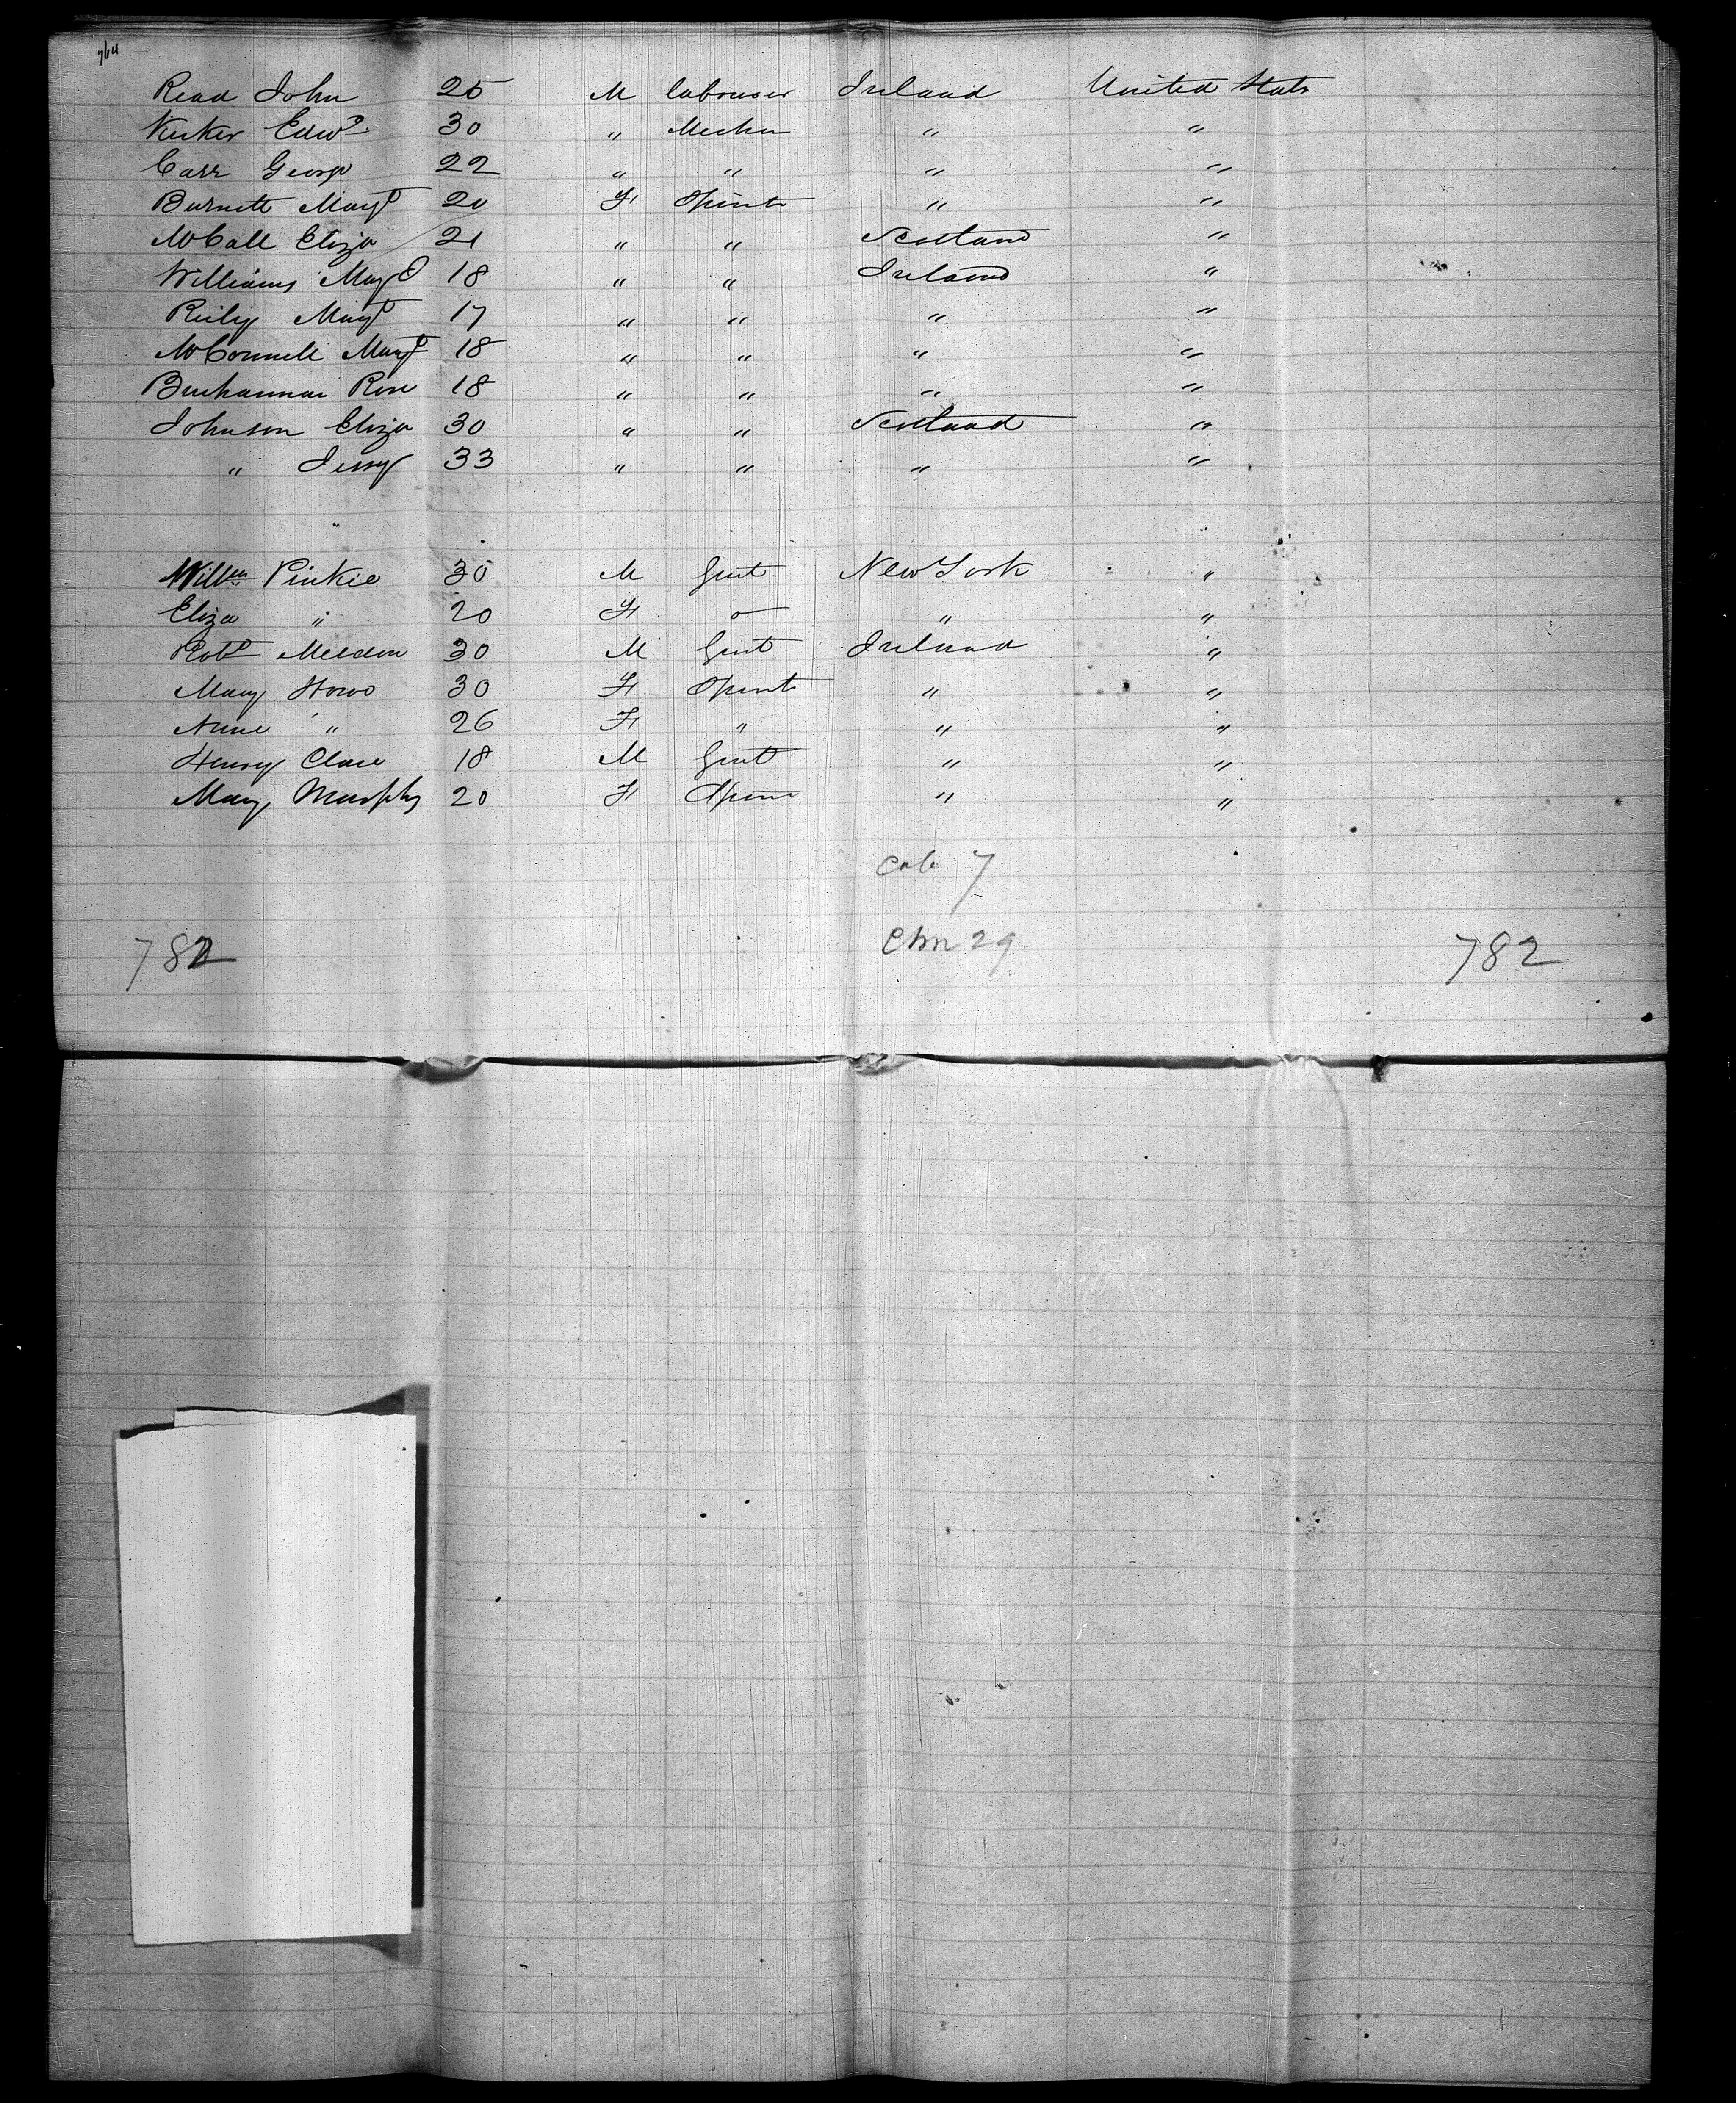 Read John 25 M labourer Ireland United Stats
Edwd 30 " Mechn " "
Carr George 22 " " " "
Burnett Margt 20 F Spinstr " "
McCall Eliza 21 " " Scotland "
Williams Margt 18 " " Ireland "
Reily Margt 17 " " " "
McConnell Margt 18 " " " "
Buchannan Rose 18 " " " "
Johnson Eliza 30 " " Scotland "
" Jessy 33 " " " "
Willm Pinkie 30 M Gent New York "
Eliza " 20 F " "
Robt 30 M Gent Ireland "
Mary Howe 30 F Spinstr " "
Anne " 26 F " " "
Henry Clare 18 M Gent " "
Mary Murphy 20 F Spins " "
Cab 7
782 29 782